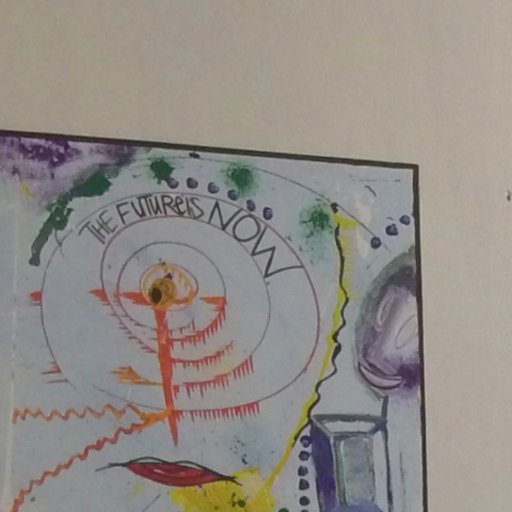 THE FUTURE IS NOW